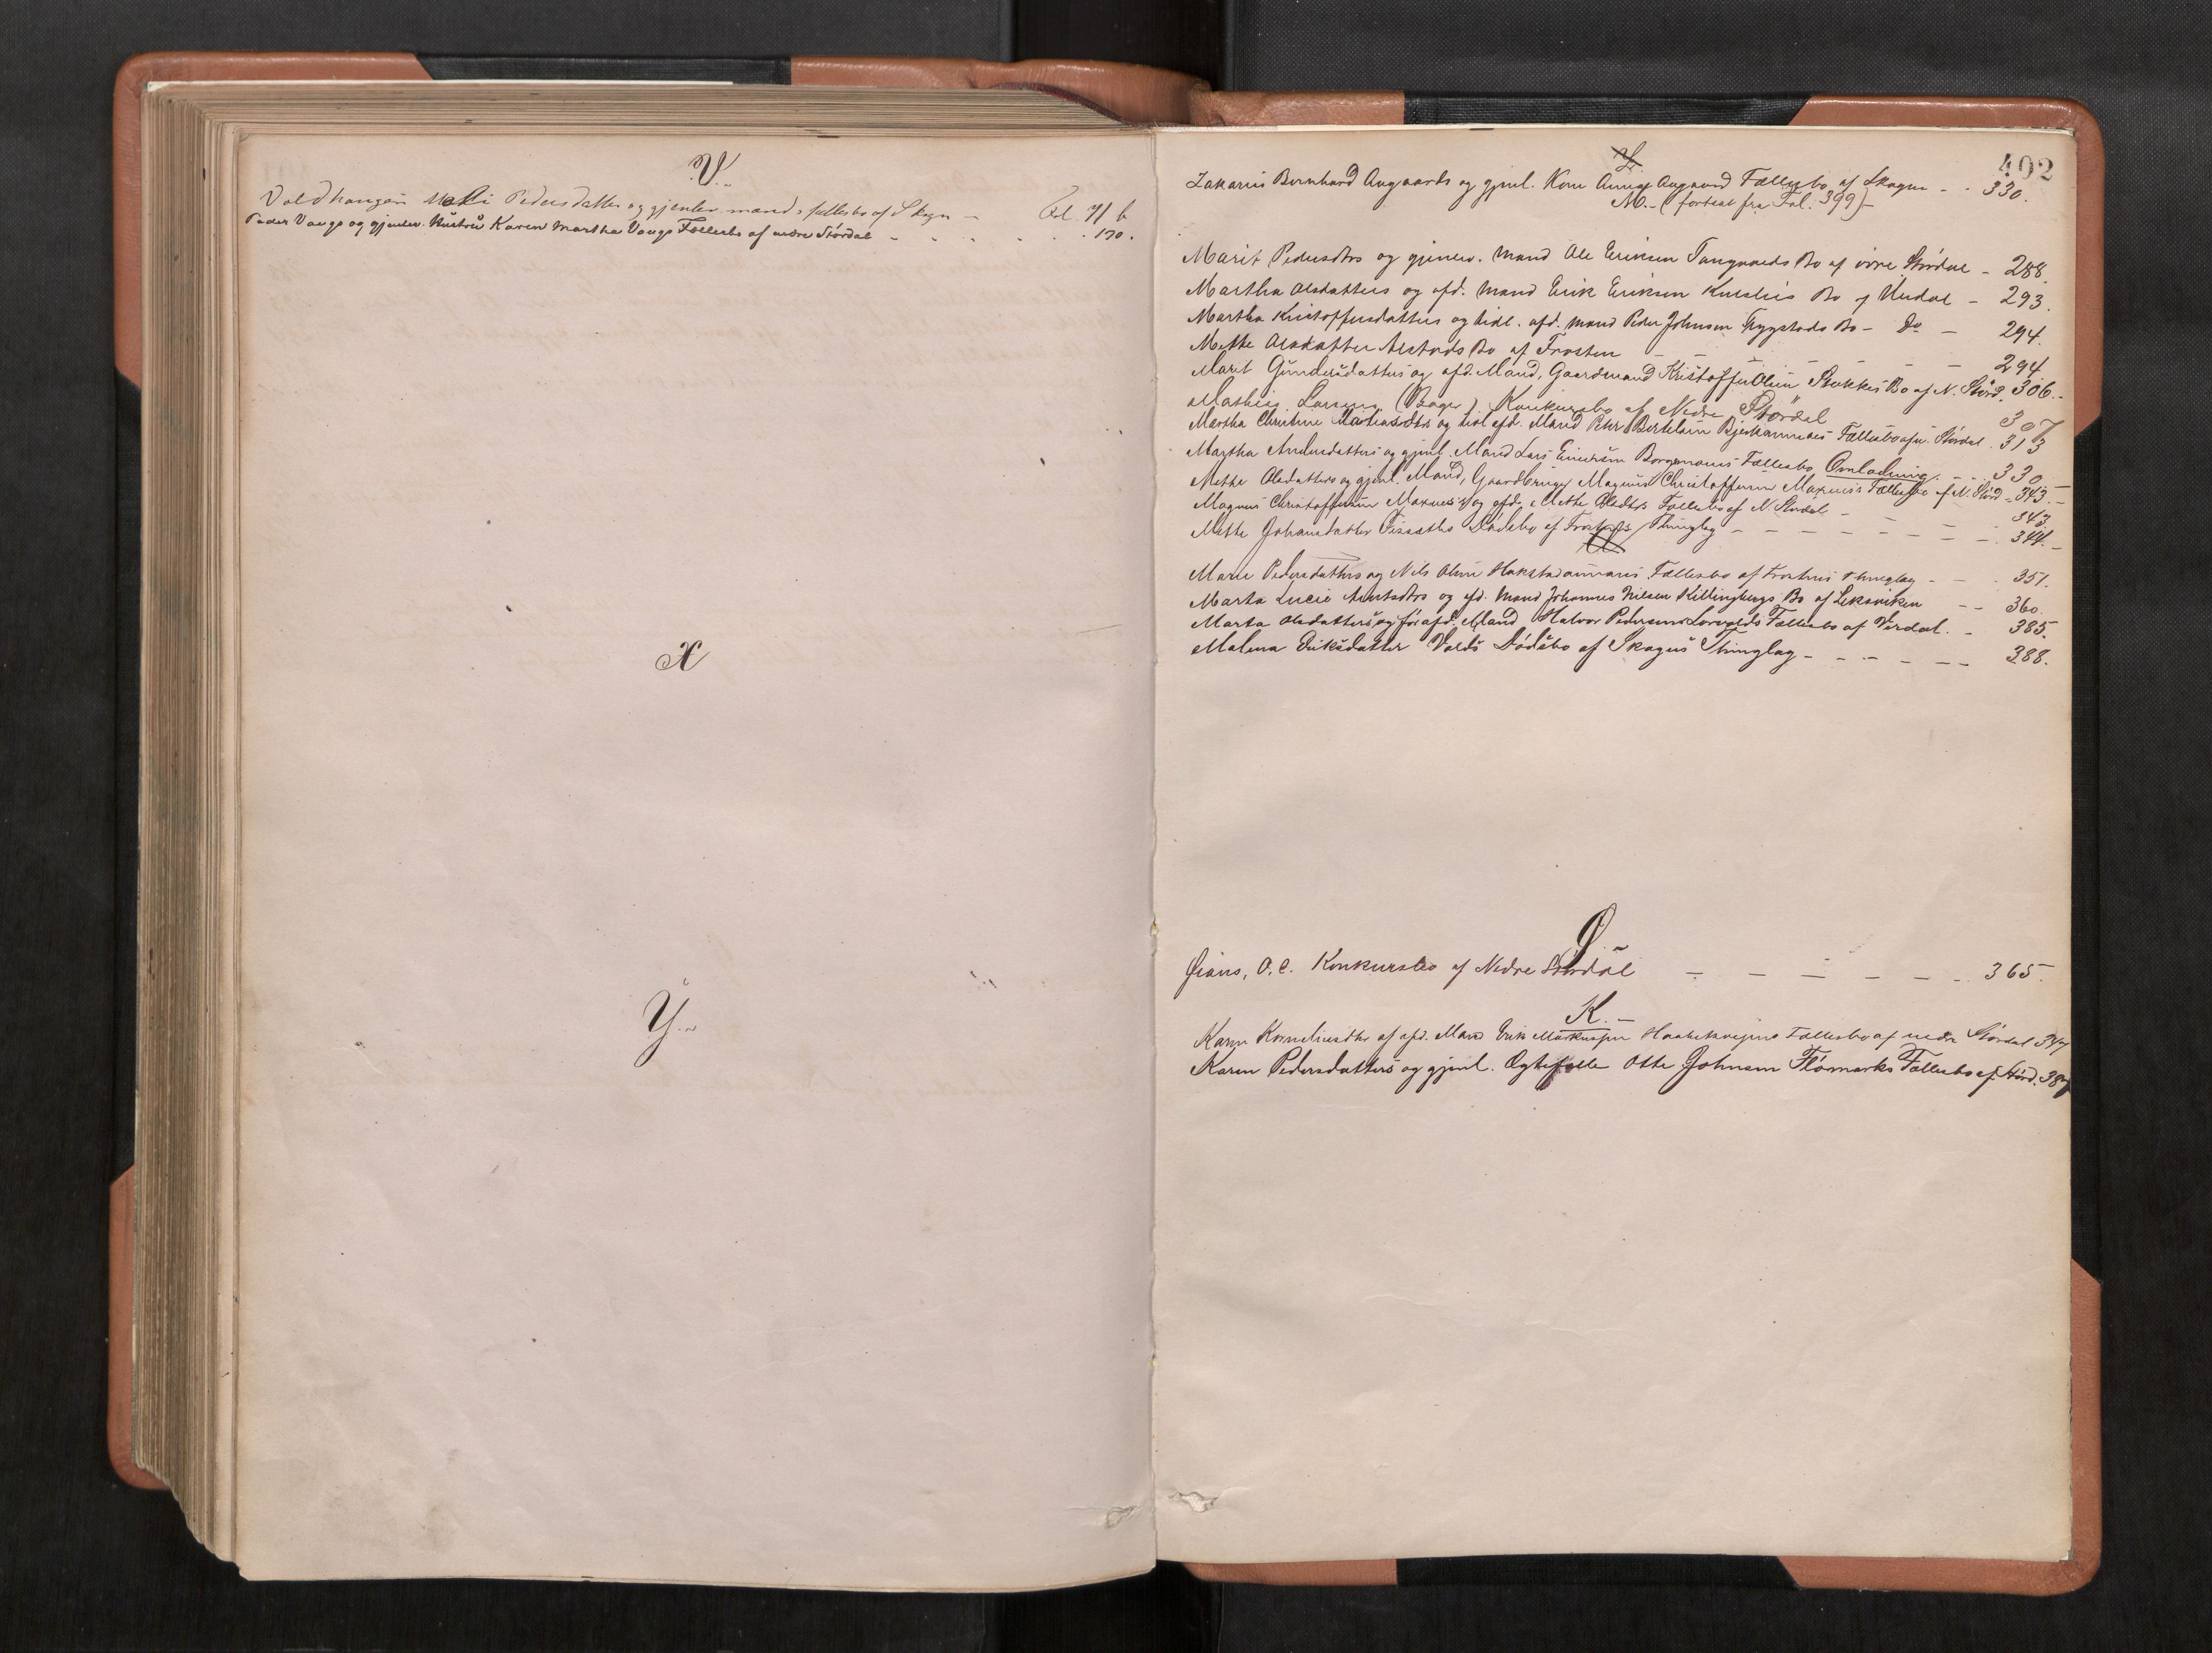 V.
Valdhaugen Mali Pedersdatter og gjenlev. mands fællesbo af Skogn - Fol. 71 b
Peder Vangs og gjenlev. Hustru Karen Martha Vangs Fællesbo af nedre Stórdal - - - - 170.
X
Y.
402
Z.
Zakarias Bernhard Aagaards og gjenl. Kone Anne Aagaard Fællesbo af Skogn - - 330.
M. - (fortsat fra Fol. 399) -
Marit Pedersdtrs og gjenlev. Mand Ole Eriksen Bo af övre Stördal - 288.
Martha Olsdatters og afd. Mand Erik Eriksen Bo af - 293.
Martha Kristoffersdatters og tidl. afd. Mand Peder Johnsen Bo - Do - 294.
Mette Olsdatter Alstads Bo af Frosten - - - - - 294
Marit Gundersdatters og afd. Mand, Gaardmand Kristoffer Olsen Stokkes Bo af N. Störd. 306.-
Mathias Larsens (Bager) Konkursbo af Nedre Stördal 307
Martha Christine og tidl afd. Mand Peter Bertelsen Fællesbo af n. Stördal. 313
Martha Andersdatters og gjenl. Mand Lars Ericksen Borgmoens Fællesbo Omlodning. - - 330 -
Mette Olsdatters og gjenl. Mand, Gaardbruger Magnus Christoffersen Fællesbo af N. Störd - 343. -
Magnus Christoffersen og afd. Mette Olsdtrs Fællesbo af N Stördal - - - - 343.
Mette Johansdatter Dödsbo af Frostens Thinglag - - - - - - - 344. -
Marie Pedersdatters og Nils Olsen Fællesbo af Frostens Thinglag - - - 351.
Marta Lucie Arntsdtrs og afd. Mand Johannes Nilsen Killingbergs Bo af Leksviken - - 360.
Marta Olsdatters og för afd. Mand Halvor Pedersens Fællesbo af Verdal. - 385.
Malena Eriksdatter Valds Dödsbo af Skogns Thinglag - - - - - - 388.
Ø. -
Øiens, O. C. Konkursbo af Nedre Stördal - - - - - - - 365.
K. -
Karen Korneliusdtr af afd. Mand Erik Markussen Fællesbo af nedre Stördal
Karen Pedersdatters og gjenl. Ægtefælle Otte Johnsen Flómarks Fællesbo af Störd. 387